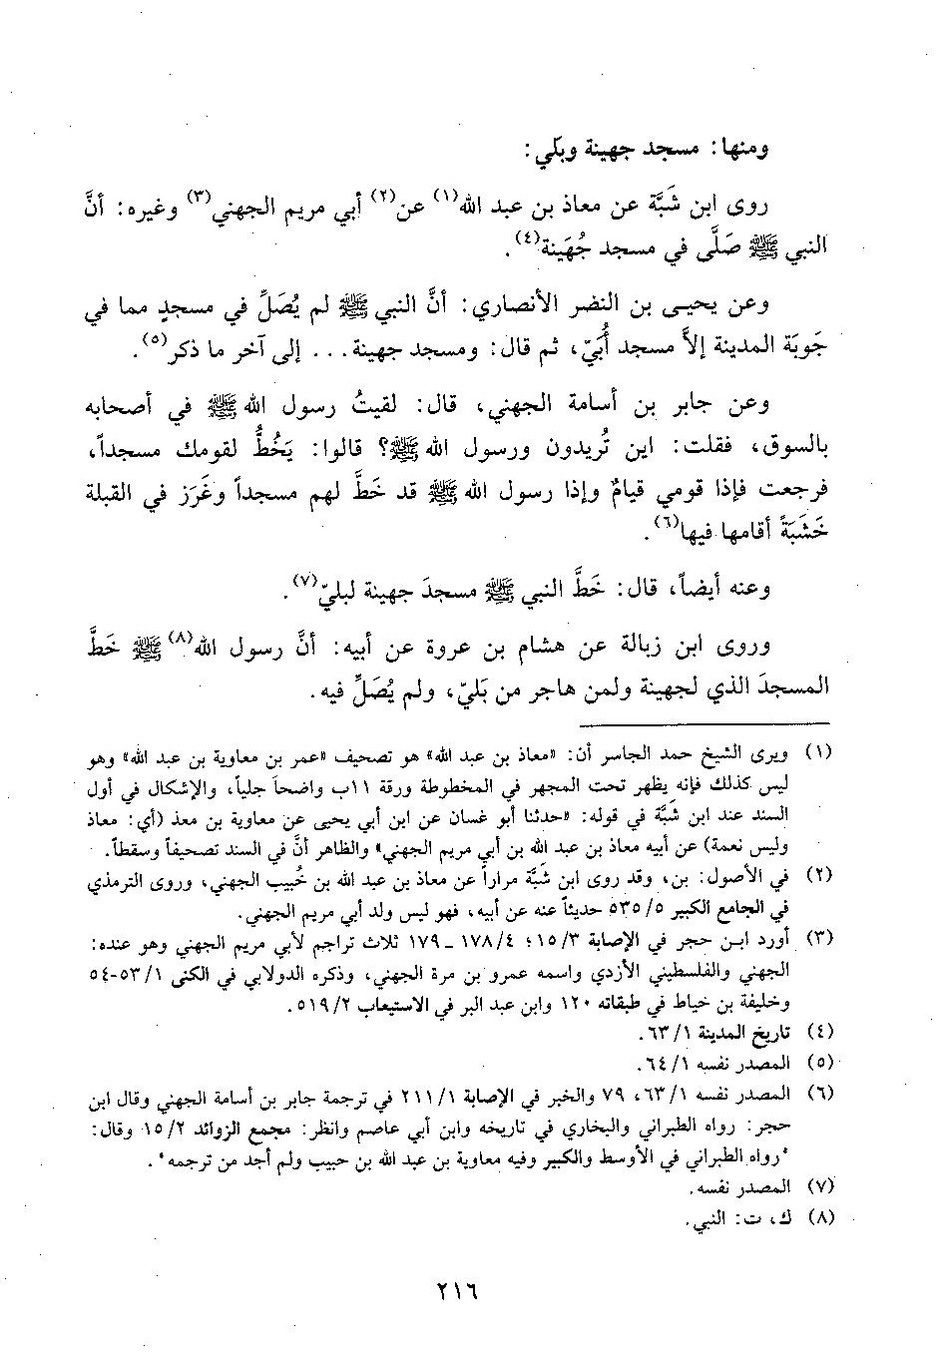 ومنها: مسجد جهينة وبَلي:
روى ابن شَبَّة عن معاذ بن عبد الله(١) عن(٢) أبي مريم الجهني(٣) وغيره: أنَّ
النبي ﷺ صَلَّى في مسجد جُهَينة(٤).
وعن يحيـى بن النضر الأنصاري: أنَّ النبي ﷺ لم يُصَلِّ في مسجدٍ مما في
جَوبَة المدينة إلاَّ مسجد أُبَيّ، ثم قال: ومسجد جهينة... إلى آخر ما ذكر(٥).
وعن جابر بن أسامة الجهني، قال: لقيتُ رسول الله ﷺ في أصحابه
بالسوق، فقلت: اين تُريدون ورسول الله ﷺ؟ قالوا: يَخُطُّ لقومك مسجداً،
فرجعت فإذا قومي قيامٌ وإذا رسول الله ﷺ قد خَطَّ لهم مسجداً وغَرَز في القبلة
خَشَبَةً أقامها فيها(٦).
وعنه أيضاً، قال: خَطَّ النبي ﷺ مسجدَ جهينة لبليّ(٧).
وروى ابن زبالة عن هشام بن عروة عن أبيه: أنَّ رسول الله(٨) ﷺ خَطَّ
المسجدَ الذي لجهينة ولمن هاجر من بَليّ، ولم يُصَلِّ فيه.
(١) ويرى الشيخ حمد الجاسر أن: «معاذ بن عبد الله» هو تصحيف «عمر بن معاوية بن عبد الله» وهو
ليس كذلك فإنه يظهر تحت المجهر في المخطوطة ورقة ١١ب واضحاً جلياً، والإشكال في أول
السند عند ابن شَبَّة في قوله: «حدثنا أبو غسان عن ابن أبي يحيى عن معاوية بن معذ (أي: معاذ
وليس نعمة) عن أبيه معاذ بن عبد الله بن أبي مريم الجهني» والظاهر أنَّ في السند تصحيفاً وسقطاً.
(٢) في الأصول: بن، وقد روى ابن شَبَّة مراراً عن معاذ بن عبد الله بن خُبيب الجهني، وروى الترمذي
في الجامع الكبير ٥/ ٥٣٥ حديثاً عنه عن أبيه، فهو ليس ولد أبي مريم الجهني.
(٣) أورد ابـن حجر في الإصابة ٣/ ١٥؛ ٤/ ١٧٨ ـ ١٧٩ ثلاث تراجم لأبي مريم الجهني وهو عنده:
الجهني والفلسطيني الأزدي واسمه عمرو بن مرة الجهني، وذكره الدولابي في الكنى ١/ ٥٣-٥٤
وخليفة بن خياط في طبقاته ١٢٠ وابن عبد البر في الاستيعاب ٢/ ٥١٩.
(٤) تاريخ المدينة ١/ ٦٣.
(٥) المصدر نفسه ١/ ٦٤.
(٦) المصدر نفسه ١/ ٦٣، ٧٩ والخبر في الإصابة ١/ ٢١١ في ترجمة جابر بن أسامة الجهني وقال ابن
حجر: رواه الطبراني والبخاري في تاريخه وابن أبي عاصم وانظر: مجمع الزوائد ٢/ ١٥ وقال:
"رواه الطبراني في الأوسط والكبير وفيه معاوية بن عبد الله بن حبيب ولم أجد من ترجمه".
(٧) المصدر نفسه.
(٨) ك، ت: النبي.
٢١٦